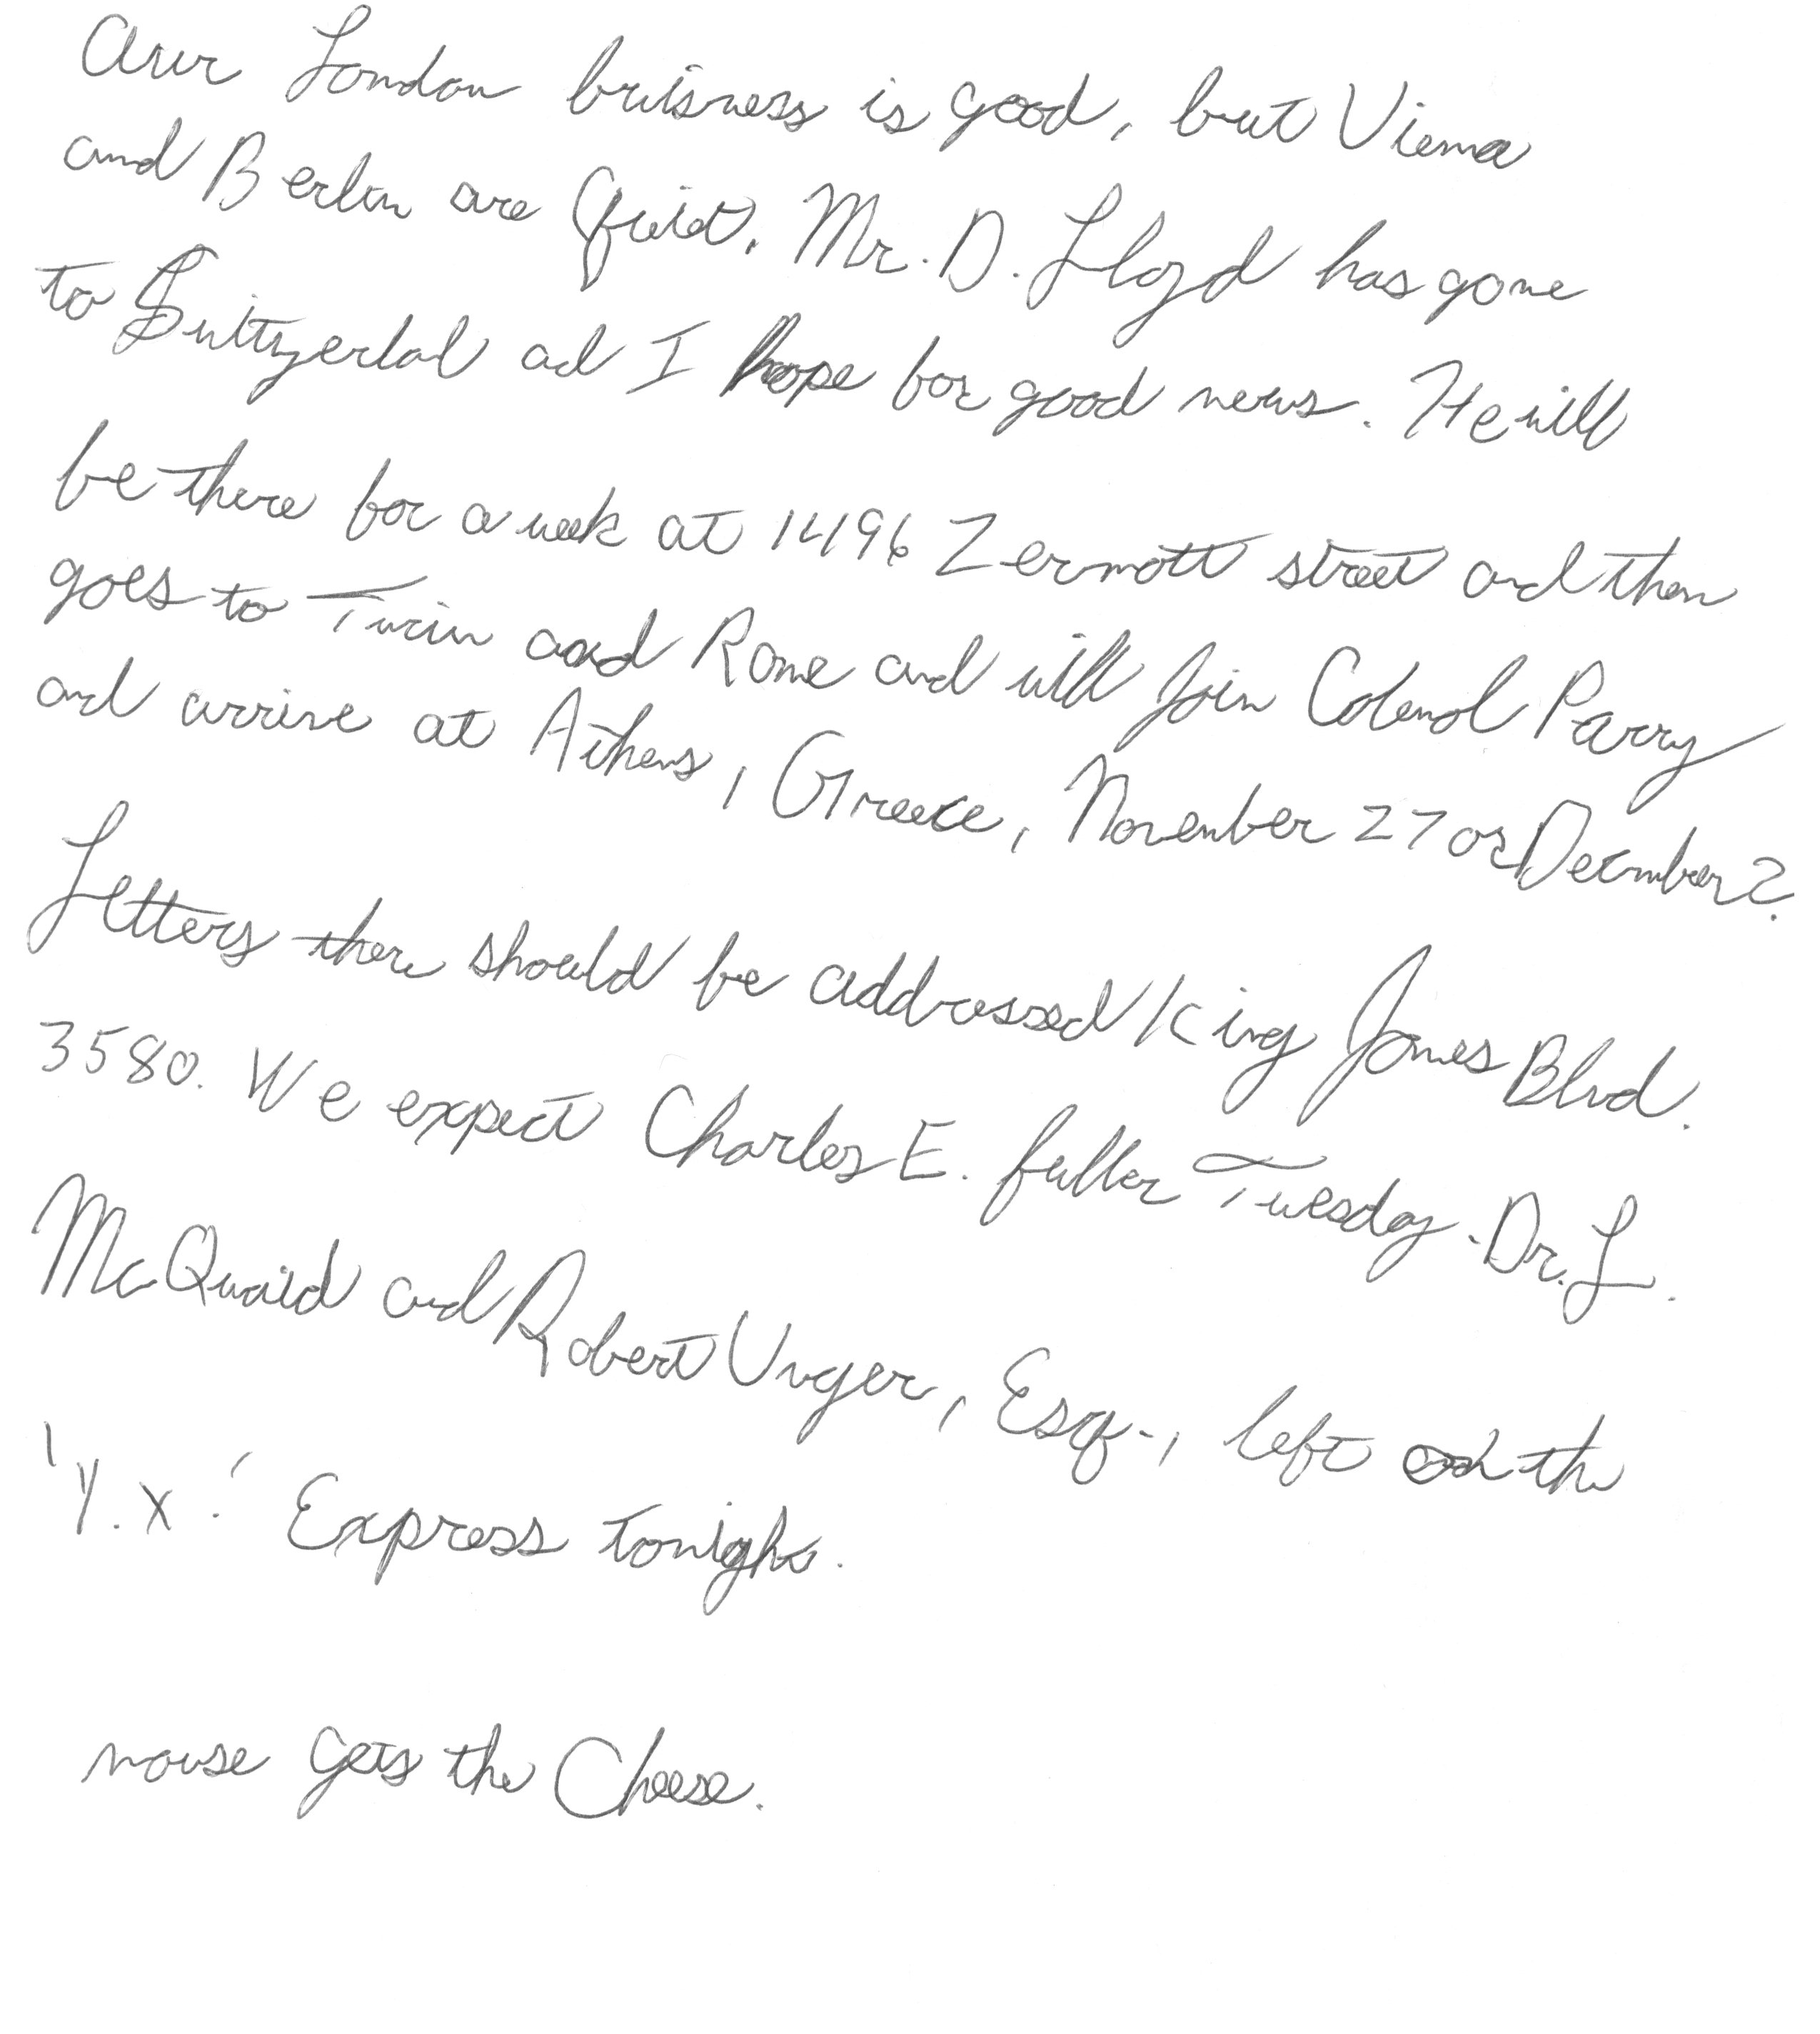 Our London buisness is good, but Vienna
and Berlin are Quiet. Mr. D. Lloyd has gone
to Switzerlad ad I hope for good news. He will
be there for a week at 1496 Zermott street and then
goes to Turin and Rome and will Join Colenol Parry
and arrive at Athens, Greece, November 27 or December 2.
Letters there should be addressed King James Blvd.
3580. We expect Charles E. fuller Tuesday. Dr. L.
McQuaid and Robert Unger, Esq., left on the
'Y.X.' Express tonight.
mouse gets the Cheese.